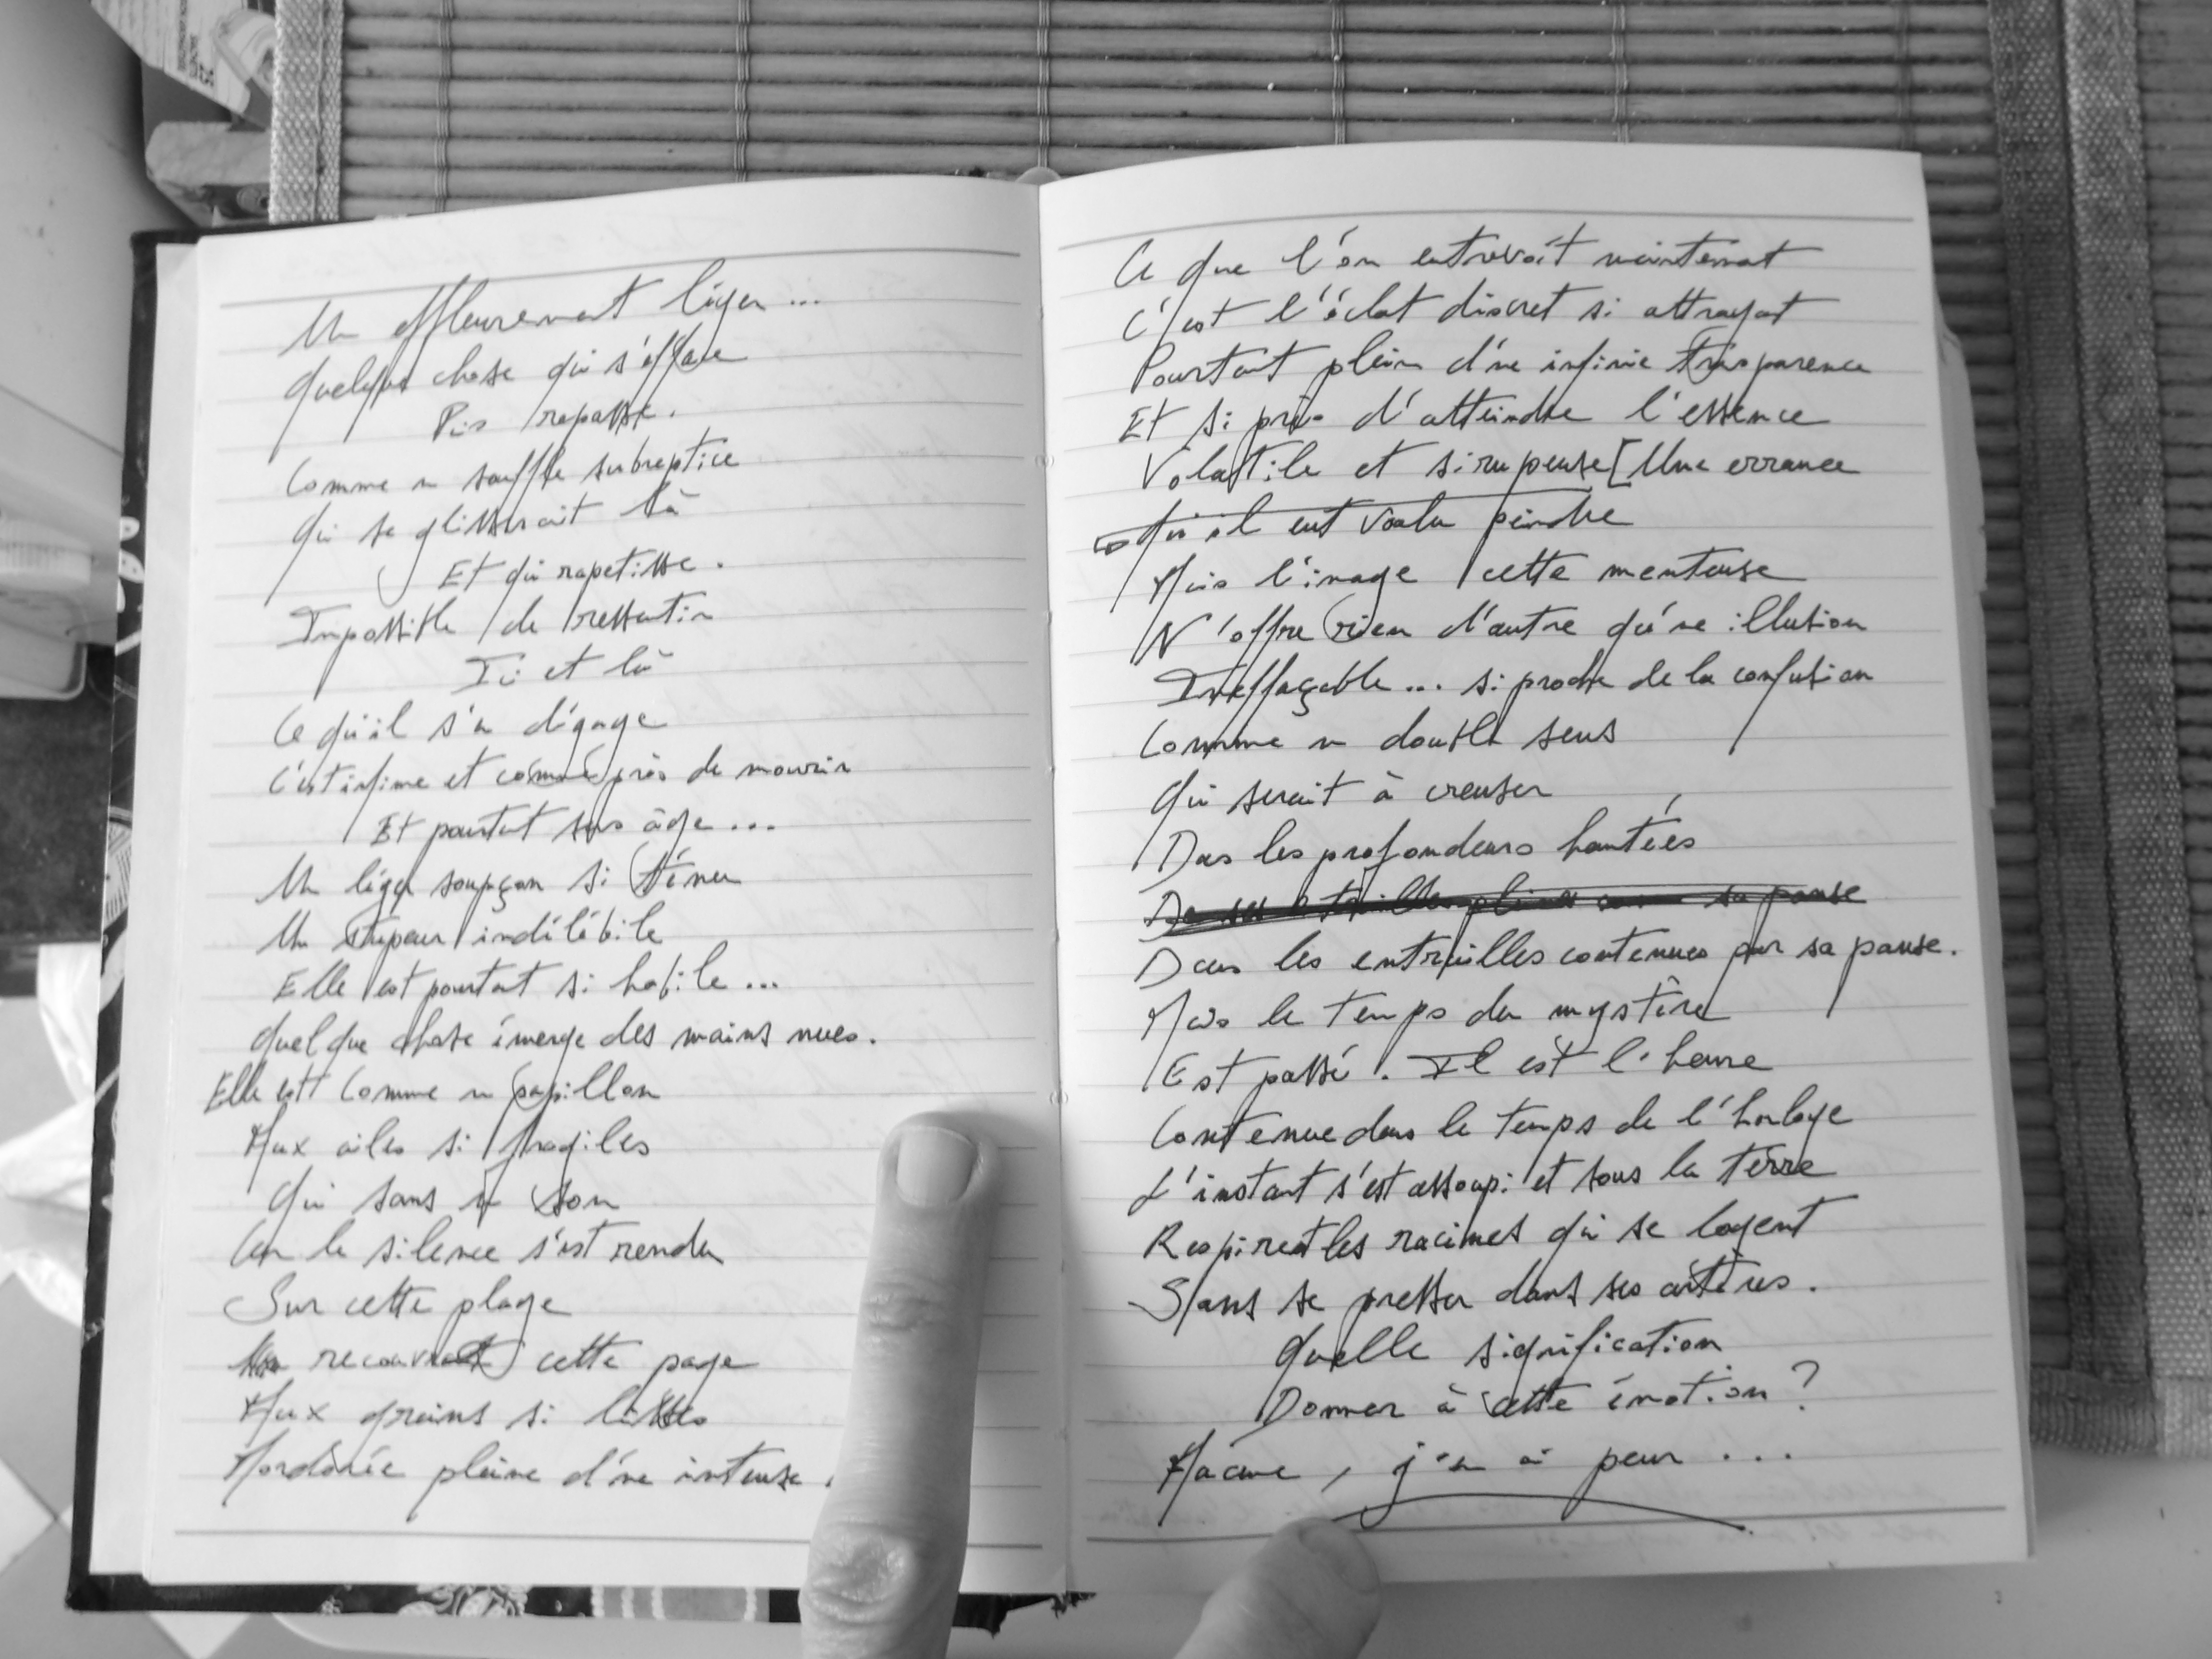 Un effleurement léger...
Quelque chose qui s'efface
Puis repasse.
Comme un souffle subreptice
Qui se glisserait là
Et qui rapetisse.
Impossible de ressentir
Ici et là
Ce qu'il s'en dégage
C'est infime et comme près de mourir
Et pourtant sans âge...
Un léger soupçon si ténu
Un stupeur indélébile
Elle est pourtant si habile...
Quelque chose émerge des mains nues.
Elle est comme un papillon
Aux ailes si fragiles
Qui sans un son
Car le silence s'est rendu
Sur cette plage
recouvrant cette page
Aux grains si lisses
Mordorée pleine d'une intense
Ce que l'on entrevoit maintenant
C'est l'éclat discret si attrayant
Pourtant plein d'une infinie transparence
Et si près d'atteindre l'essence
Volatile et sirupeuse [Une errance
Qu'il eut voulu peindre
Mais l'image cette menteuse
N'offre rien d'autre qu'une illusion
Ineffaçable... si proche de la confusion
Comme un double sens
Qui serait à creuser
Dans les profondeurs hantées
De ses entrailles sa panse
Dans les entrailles contenues par sa panse.
Mais le temps du mystère
Est passé. Il est l'heure
Contenue dans le temps de l'horloge
L'instant s'est assoupi et sous la terre
Respirent les racines qui se logent
Sans se presser dans ses artères.
Quelle signification
Donner à cette émotion ?
Aucune, j'en ai peur...